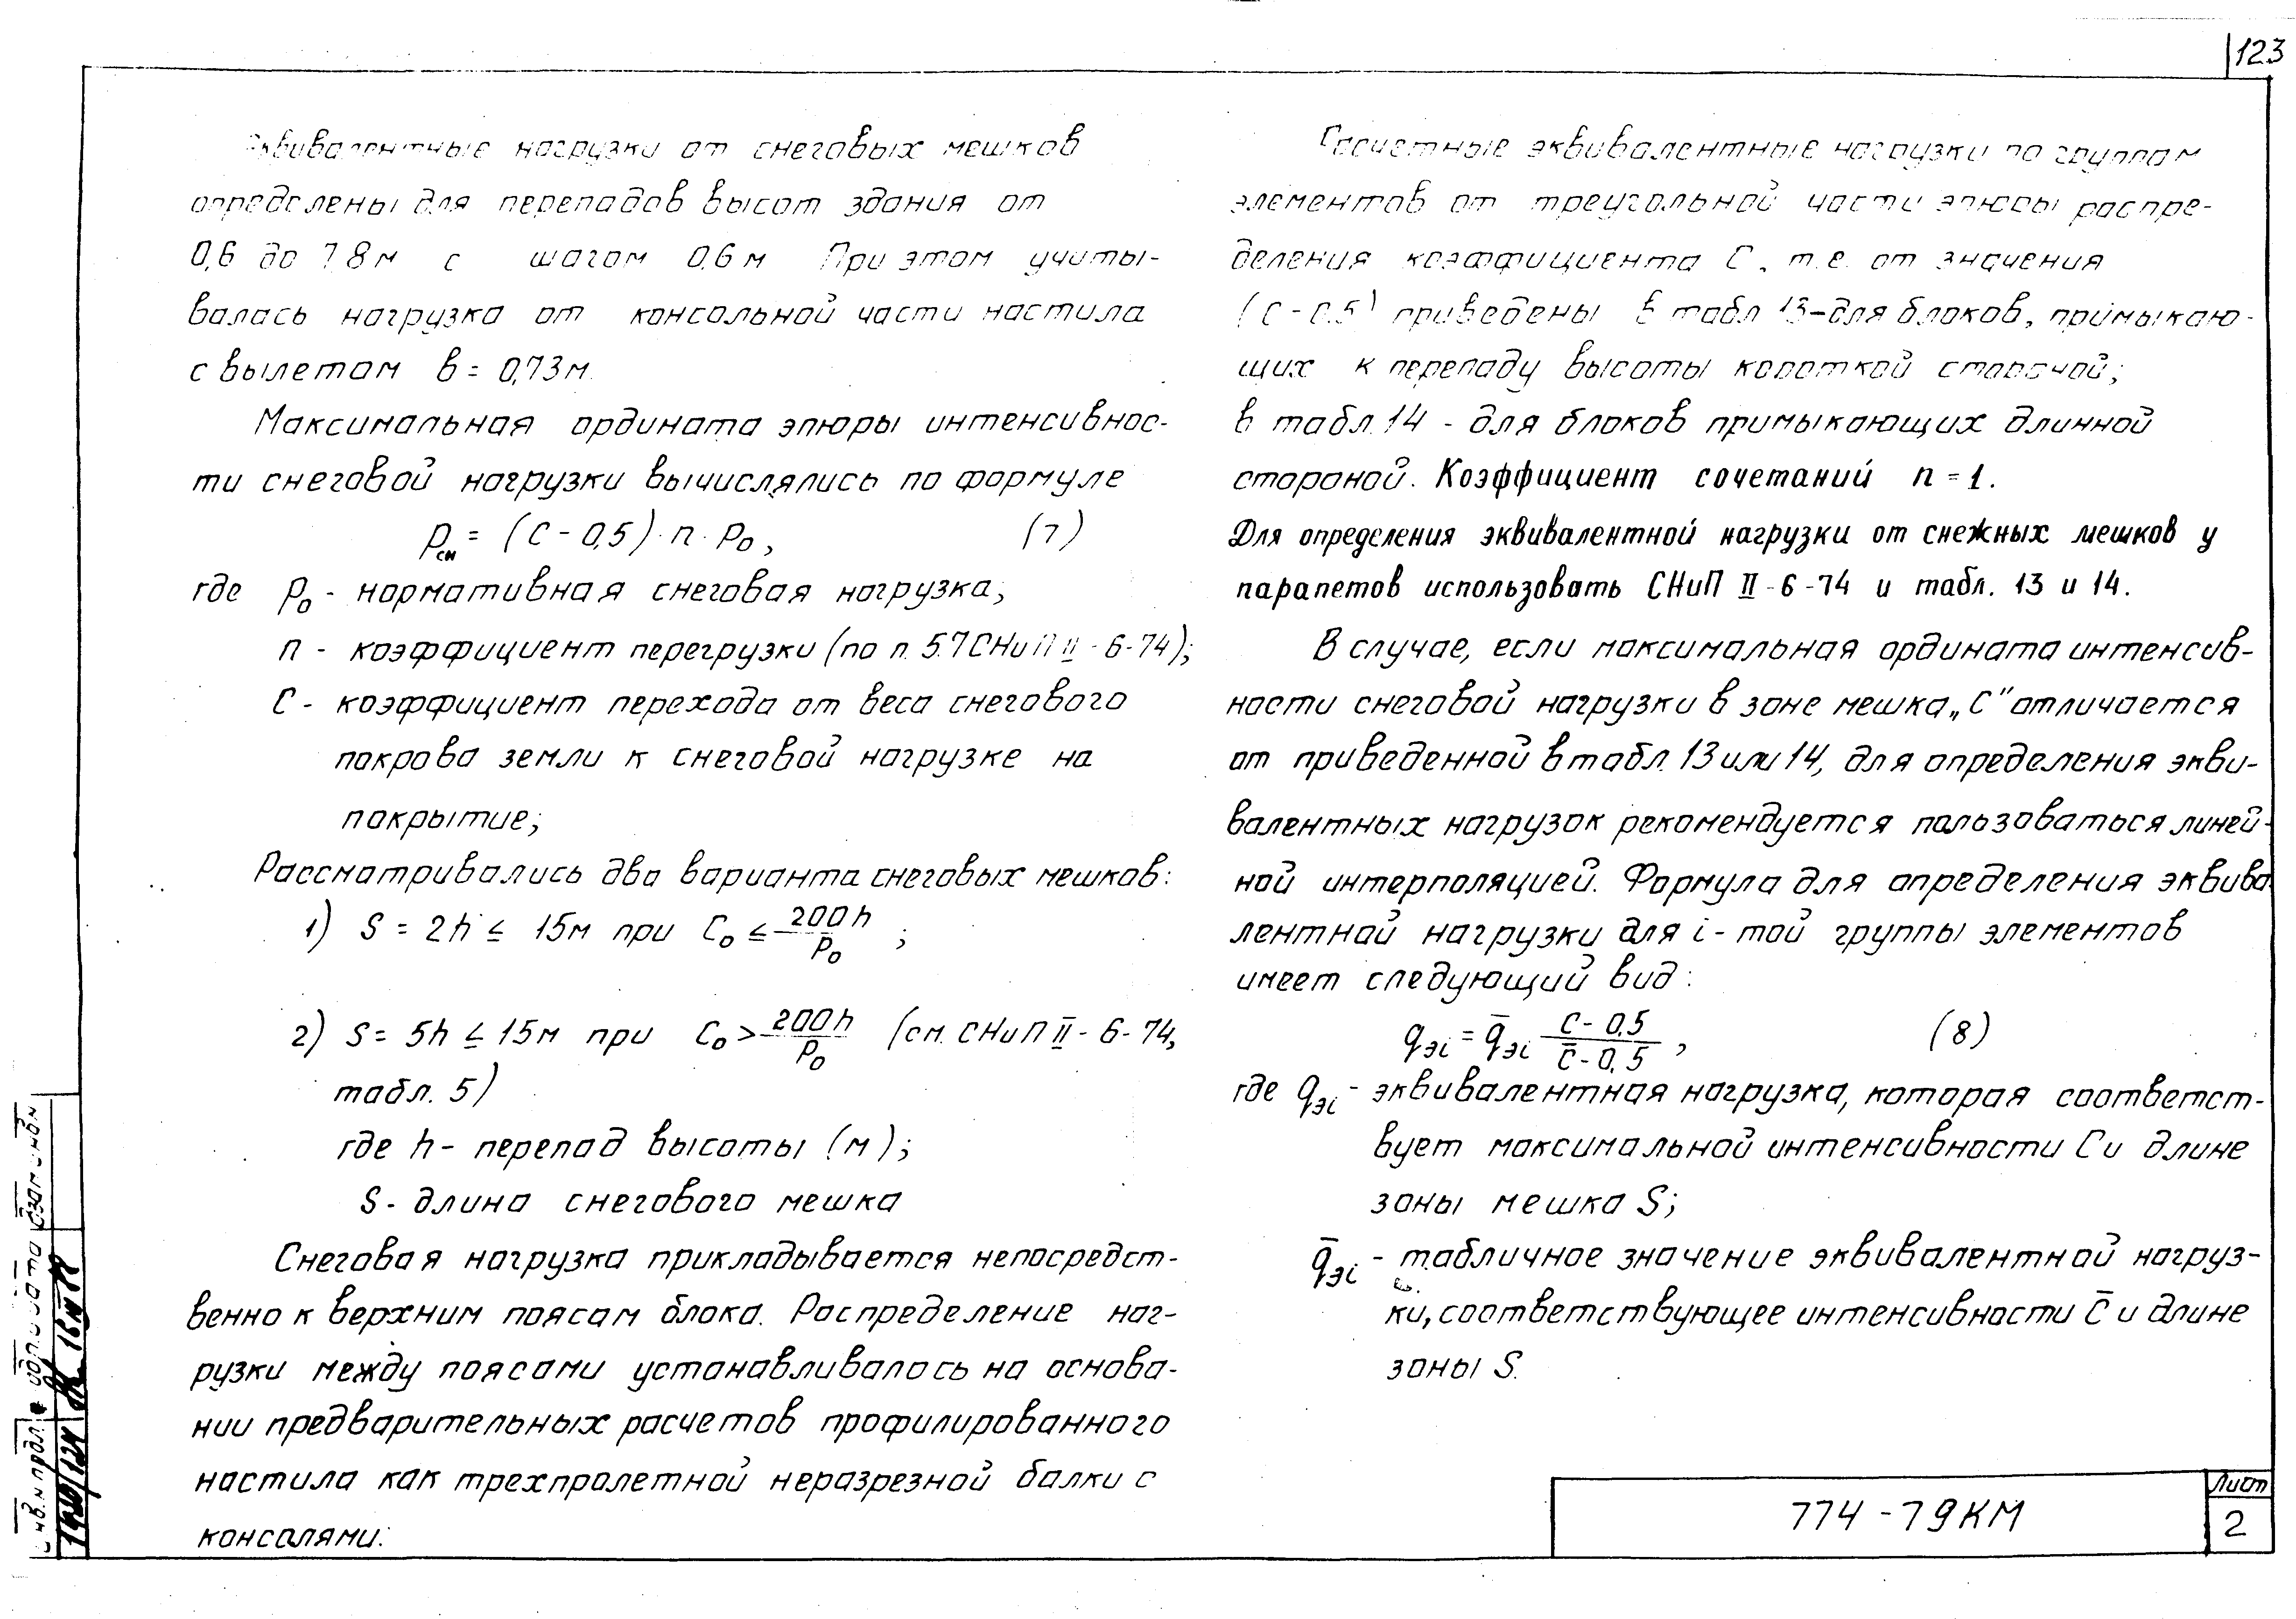 123
Эквивалентные нагрузки от снеговых мешков
определены для перепадов высот здания от
0,6 до 7,8 м с шагом 0,6 м При этом учиты-
валась нагрузка от консольной части настила
с вылетом в = 0,73 м.
Максимальная ордината эпюры интенсивнос-
ти снеговой нагрузки вычислялись по формуле
Pсн = (С - 0,5) · п · Po, (7)
где Po - нормативная снеговая нагрузка;
п - коэффициент перегрузки (по п. 5.7 СНиП II - 6-74);
С - коэффициент перехода от веса снегового
покрова земли к снеговой нагрузке на
покрытие;
Рассматривались два варианта снеговых мешков:
1) S = 2h ≤ 15м при Co ≤ 200h/Po ;
2) S = 5h ≤ 15м при Co > 200h/Po (см. СНиП II - 6-74,
табл. 5)
где h - перепад высоты (м);
S - длина снегового мешка
Снеговая нагрузка прикладывается непосредст-
венно к верхним поясам блока. Распределение наг-
рузки между поясами устанавливалось на основа-
нии предварительных расчетов профилированного
настила как трехпролетной неразрезной балки с
консолями.
Расчетные эквивалентные нагрузки по группам
элементов от треугольной части эпюры распре-
деления коэффициента С, т.е. от значения
(С - 0.5) приведены в табл 13-для блоков, примыкаю-
щих к перепаду высоты короткой стороной;
в табл. 14 - для блоков примыкающих длинной
стороной. Коэффициент сочетаний п = 1.
Для определения эквивалентной нагрузки от снежных мешков у
парапетов использовать СНиП II-6-74 и табл. 13 и 14.
В случае, если максимальная ордината интенсив-
ности снеговой нагрузки в зоне мешка „С" отличается
от приведенной в табл. 13 или 14, для определения экви-
валентных нагрузок рекомендуется пользоваться линей-
ной интерполяцией. Формула для определения эквива-
лентной нагрузки для i - той группы элементов
имеет следующий вид:
qэi = q̄эi (С - 0,5)/(С̄ - 0,5), (8)
где qэi - эквивалентная нагрузка, которая соответст-
вует максимальной интенсивности С и длине
зоны мешка S;
q̄эi - табличное значение эквивалентной нагруз-
ки, соответствующее интенсивности С̄ и длине
зоны S.
774 - 79КМ
Лист
2